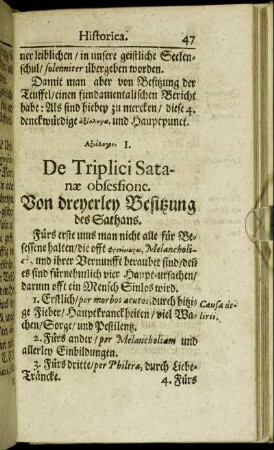 Historica. 47
ner leiblichen / in unsere geistliche Seelen-
schul / solenniter übergeben worden.
Damit man aber von Besitzung der
Teuffel / einen fundamentalischen Bericht
habe: Als sind hiebey zu mercken / diese 4.
denckwürdige ἀξιόλογα, und Hauptpunct.
Αξιόλογον. I.
De Triplici Sata-
næ obsessione.
Von dreyerley Besitzung
des Sathans.
Fürs erste mus man nicht alle für Be-
sessene halten / die offt Melancholi-
ci, und ihrer Vernunfft beraubet sind / deñ
es sind fürnehmlich vier Haupt-ursachen /
darum offt ein Mensch Sinlos wird.
1. Erstlich / per morbos acutos, durch hitzi- Causa de-
ge Fieber / Hauptkranckheiten / viel Wa- lirii.
chen / Sorge / und Pestilentz.
2. Fürs ander / per Melancholiam und
allerley Einbildungen.
3. Fürs dritte / per Philtra, durch Liebs-
Träncke.
4. Fürs